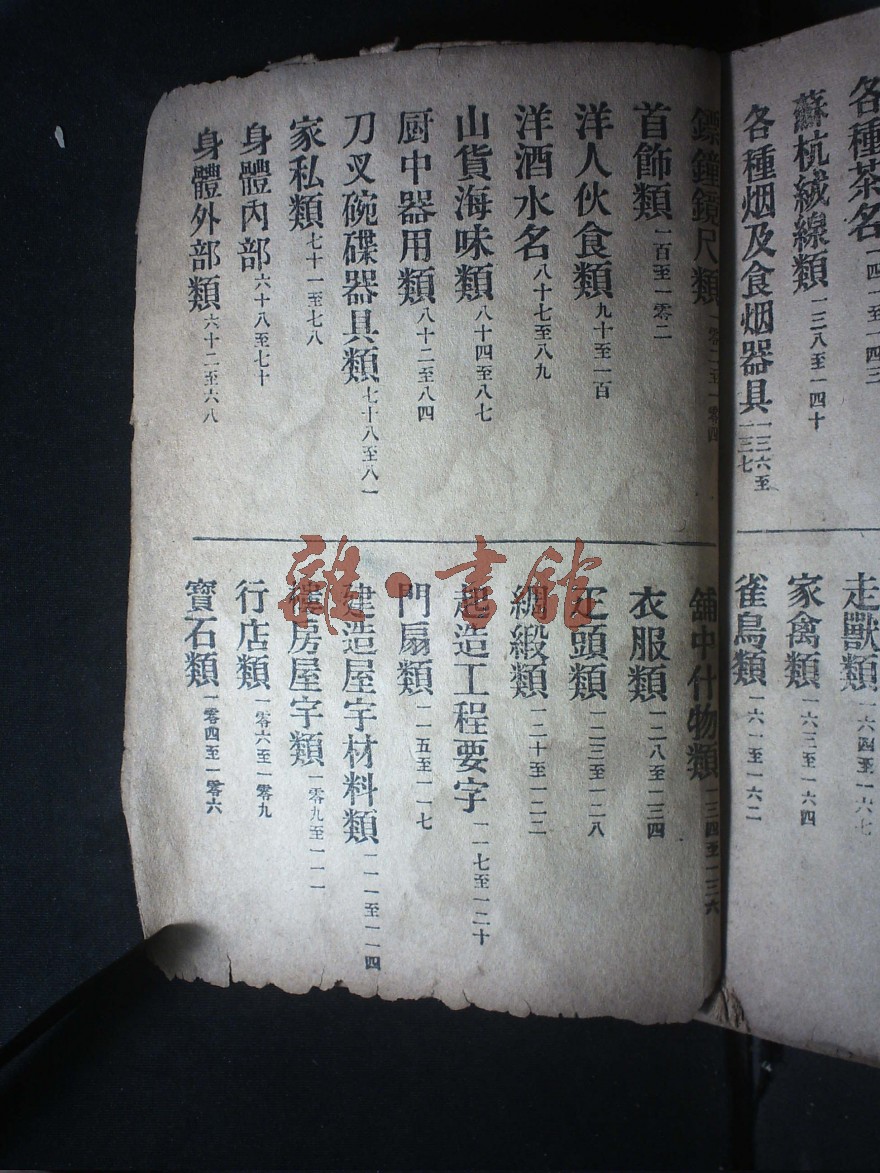 身體外部類 六十二至六八
身體內部 六十八至七十
家私類 七十一至七八
刀叉碗碟器具類 七十八至八一
厨中器用類 八十二至八四
山貨海味類 八十四至八七
洋酒水名 八十七至八九
洋人伙食類 九十至一百
首飾類 一百至一零二
鏢鐘鏡尺類 一零二至一零四
寶石類 一零四至一零六
行店類 一零六至一零九
樓房屋字類 一零九至一一一
建造屋宇材料類 一一一至一一四
門扇類 一一五至一一七
起造工程要字 一一七至一二十
綢緞類 一二十至一二二
疋頭類 一二三至一二八
衣服類 一二八至一三四
舖中什物類 一三四至一三六
各種烟及食烟器具 一三六至一三七
蘇杭絨線類 一三八至一四十
各種茶名 一四一至一四三
雀鳥類 一六一至一六二
家禽類 一六三至一六四
走獸類 一六四至一六七
雜·書館